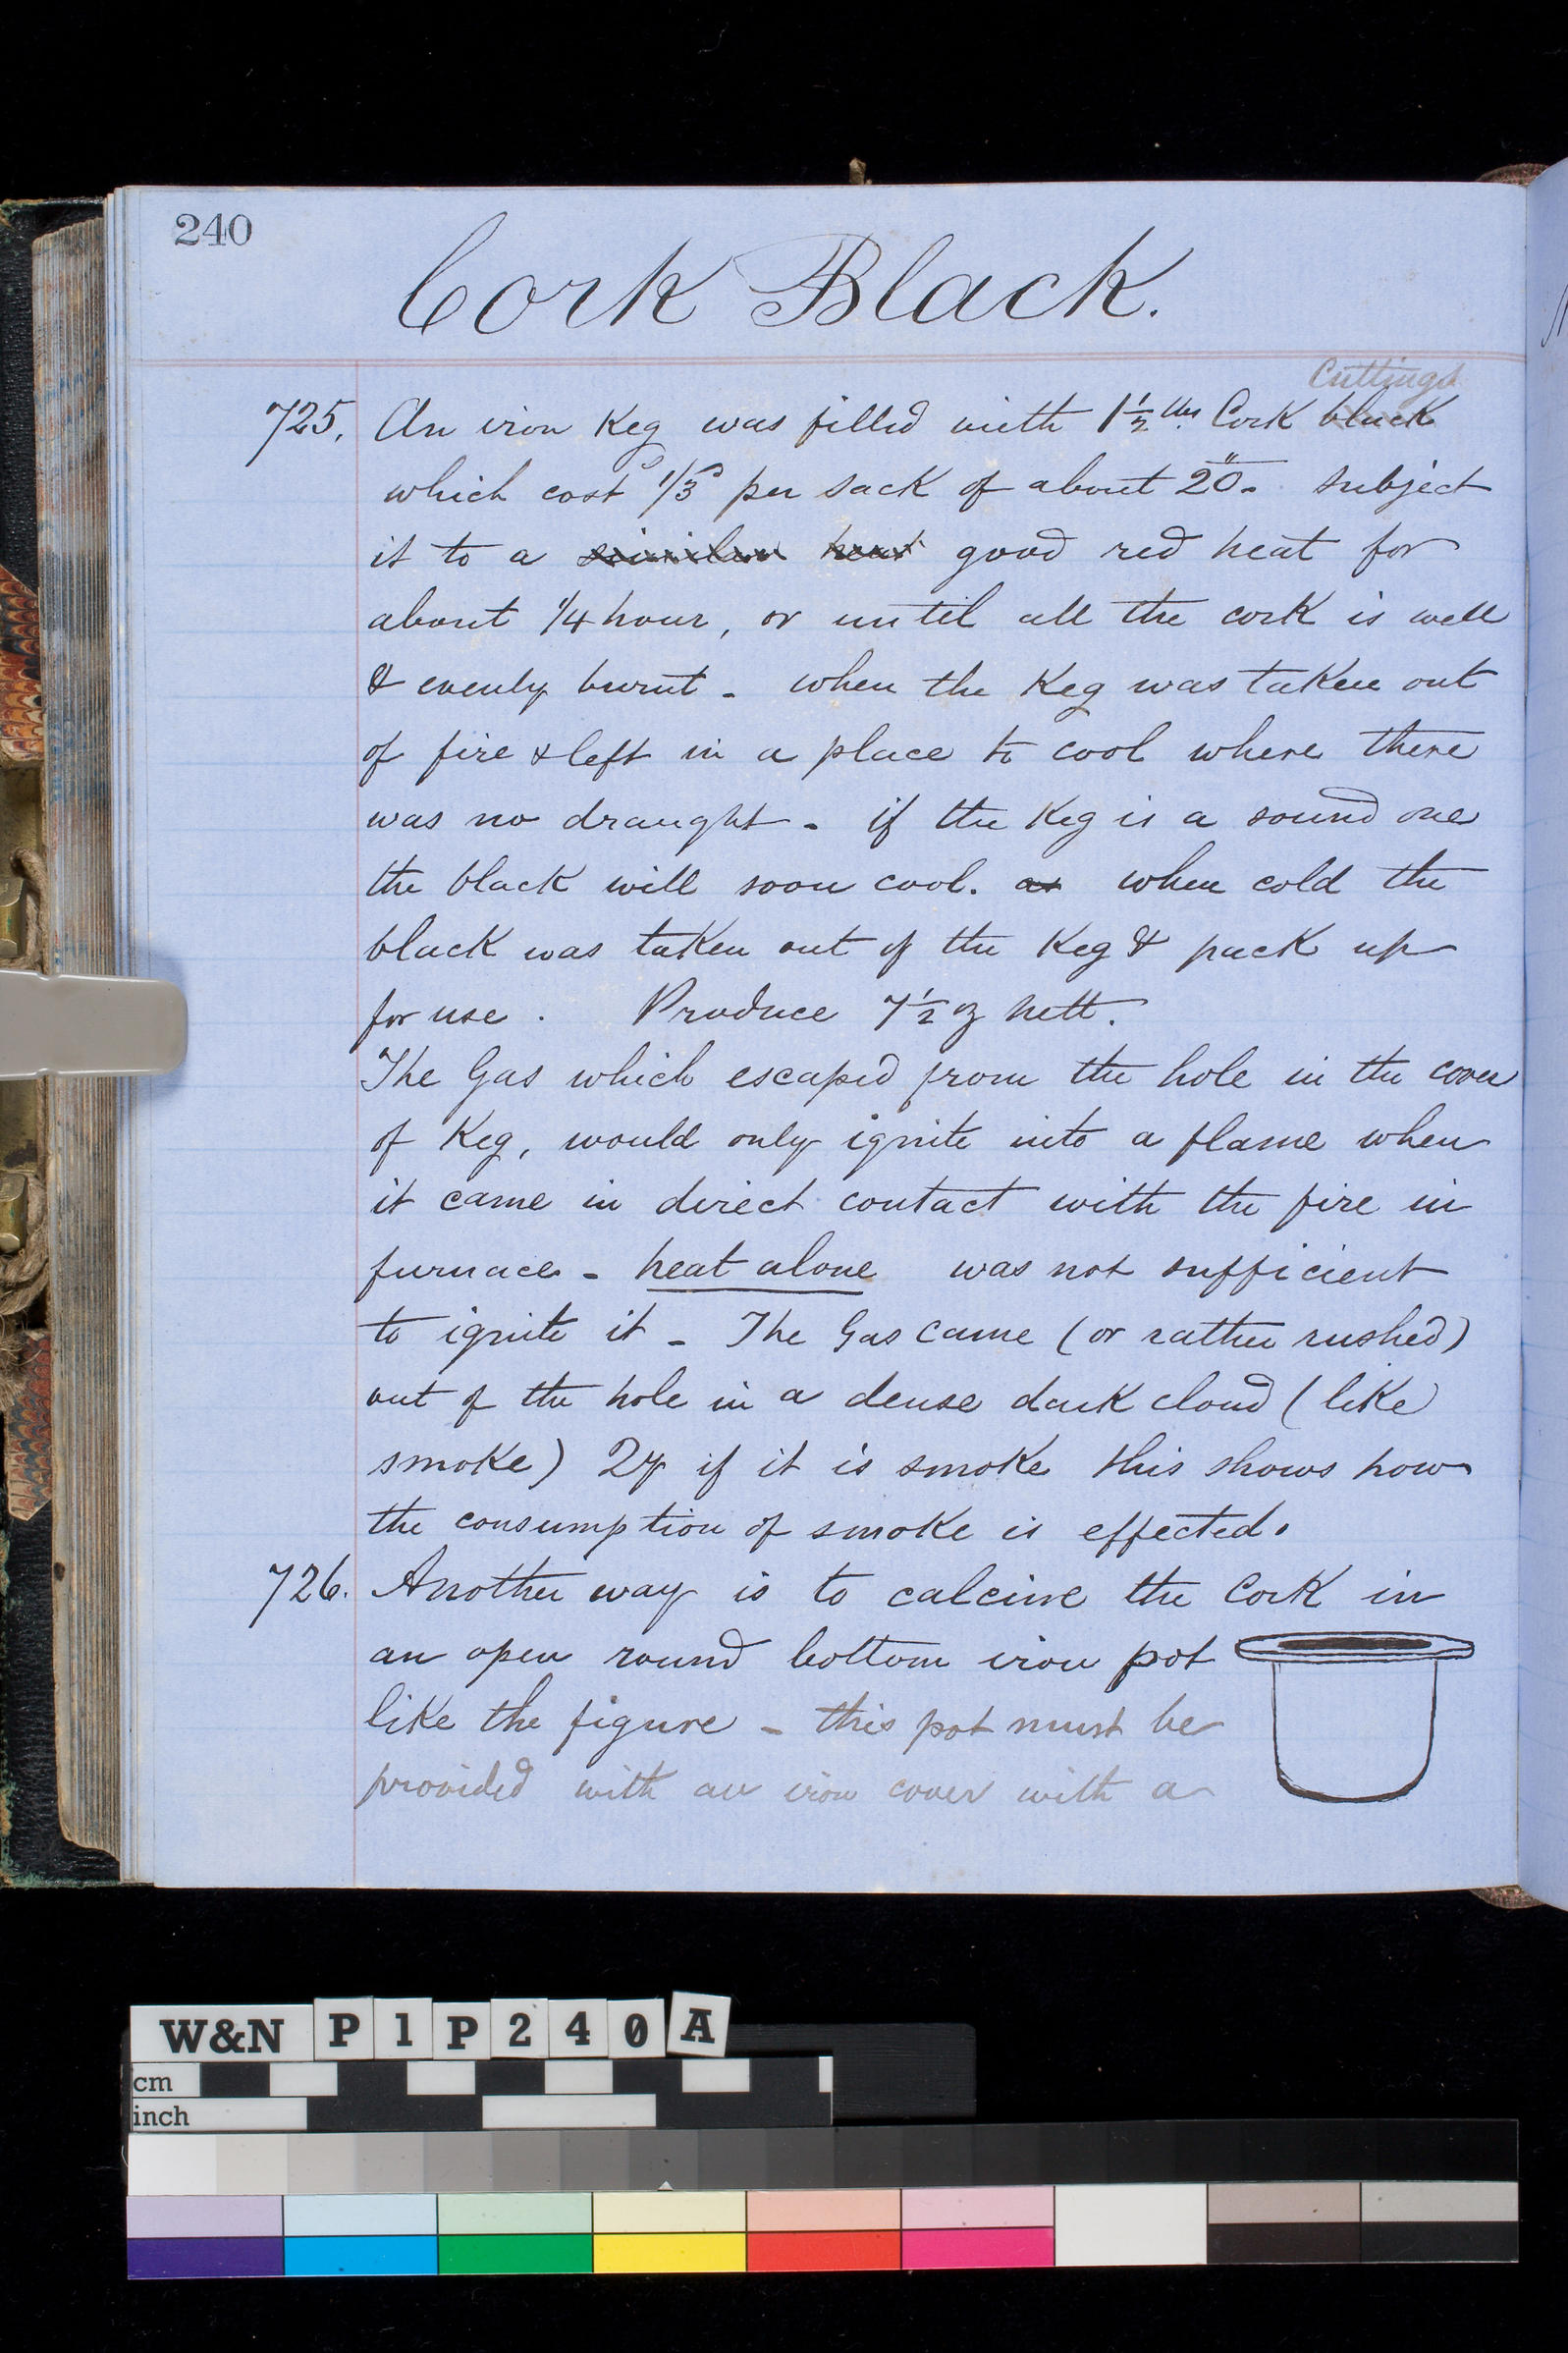 240
Cork Black.
Cuttings
725. An iron Keg was filled with 1½ lbs. Cork black
which cost 1/3 per sack of about 20. subject
it to a similar heat good red heat for
about 1/4 hour, or until all the cork is well
& evenly burnt - when the Keg was taken out
of fire & left in a place to cool where there
was no draught - if the Keg is a sound one
the black will soon cool. as when cold the
black was taken out of the Keg & pack up
for use. Produce 7½ oz nett.
The Gas which escaped from the hole in the cover
of Keg, would only ignite into a flame when
it came in direct contact with the fire in
furnace - heat alone was not sufficient
to ignite it - The Gas came (or rather rushed)
out of the hole in a dense dark cloud (like
smoke) Qy if it is smoke this shows how
the consumption of smoke is effected.
726. Another way is to calcine the Cork in
an open round bottom iron pot
like the figure - this pot must be
provided with an iron cover with a
W&N P1P240A
cm
inch